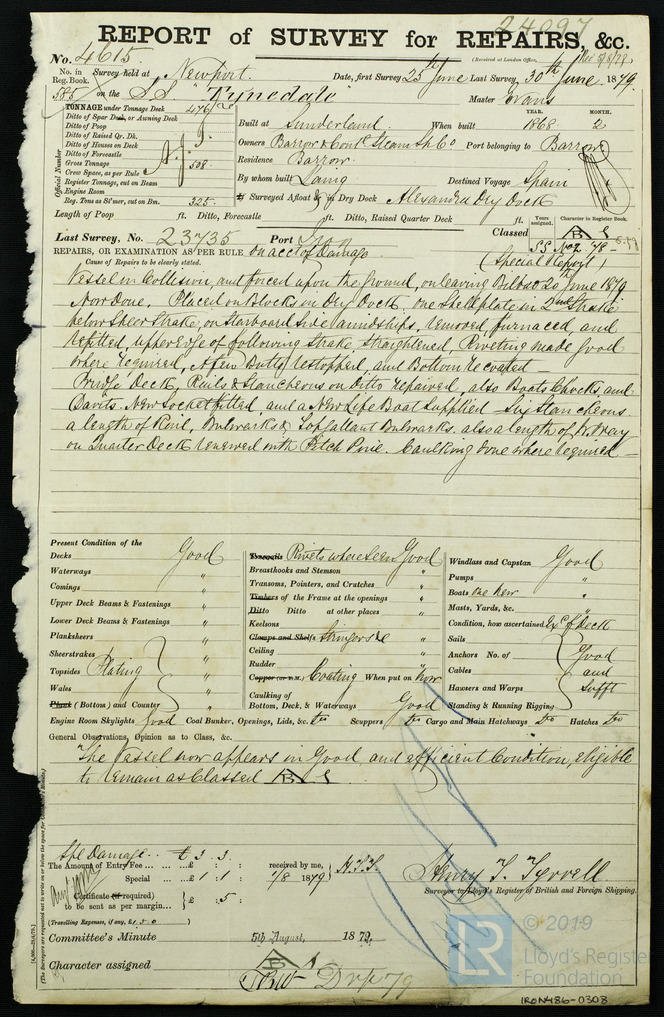 24097
REPORT of SURVEY for REPAIRS, &c.
(Received at London Office, 5/8/79)
No. 4615.
No. in Reg. Book. Survey held at Newport. Date, first Survey 25th June Last Survey, 30th June, 1879.
585 on the S.S. "Tynedale" Master Evans
TONNAGE under Tonnage Deck 476
Ditto of Spar Deck, or Awning Deck
Ditto of Poop
Ditto of Raised Qr. Dk.
Ditto of Houses on Deck
Ditto of Forecastle
Gross Tonnage 508
Crew Space, as per Rule
Register Tonnage, cut on Beam
Engine Room
Reg. Tons as St'mer, cut on Bm. 325.
Official Number
YEAR. MONTH.
Built at Sunderland. When built 1868 2
Owners Barrow & Contl Steam Sh Co Port belonging to Barrow
Residence Barrow.
By whom built Laing Destined Voyage Spain
If Surveyed Afloat or in Dry Dock Alexandra Dry Dock
Length of Poop ft. Ditto, Forecastle ft. Ditto, Raised Quarter Deck ft.
Years assigned. Character in Register Book.
Last Survey, No. 23735 Port Classed
SS No 2 78
REPAIRS, OR EXAMINATION AS PER RULE on acct of Damage (Special Report)
Cause of Repairs to be clearly stated.
Vessel in Collision, and forced upon the ground, on leaving Bilbao 20th June 1879
Now done, Placed on blocks in Dry Dock. one Shell plate in 2nd Strake
below Sheer Strake, on Starboard side amidships, removed, furnaced, and
refitted, upper edge of following Strake, Straightened, Riveting made good
where required, A few Butts restopped, and Bottom recoated
Bridge Deck, Rails & Stancheons on Ditto repaired, also Boats Chocks and
Davits. New Socket fitted, and a New Life Boat supplied Six Stancheons
a length of Rail, Bulwarks & Topgallant Bulwarks. also a length of
on Quarter Deck renewed with Pitch Pine. Caulking done where required
Present Condition of the
Decks Good
Waterways "
Comings "
Upper Deck Beams & Fastenings "
Lower Deck Beams & Fastenings "
Planksheers
Sheerstrakes
Topsides Plating "
Wales
Plank (Bottom) and Counter
Engine Room Skylights Good Coal Bunker, Openings, Lids, &c. Do Scuppers Do Cargo and Main Hatchways Do Hatches Do
Treenails Rivets where seen Good
Breasthooks and Stemson "
Transoms, Pointers, and Crutches "
Timbers of the Frame at the openings "
Ditto Ditto at other places "
Keelsons "
Clamps and Shelfs Stringers &c "
Ceiling "
Rudder "
Copper (or Y.M.) Coating When put on Now
Caulking of
Bottom, Deck, & Waterways Good
Windlass and Capstan Good
Pumps "
Boats one New "
Masts, Yards, &c. "
Condition, how ascertained Exd of Deck
Sails
Anchors No. of Good
Cables and
Hawsers and Warps Sufft
Standing & Running Rigging
General Observations, Opinion as to Class, &c.
The Vessel now appears in Good, and efficient Condition, eligible
to remain as Classed
Spl Damage £ 3 : 3
The Amount of Entry Fee ... £ : : received by me,
Special ... £ 1 : 1 7/8 1879 H.T.T.
Certificate (if required) £ : 5
to be sent as per margin...
(Travelling Expenses, if any, £1.5.0)
Henry T. Tyrrell
Surveyor to Lloyd's Register of British and Foreign Shipping.
Committee's Minute 5th August, 1879.
Character assigned
(The Surveyors are requested not to write on or below the space for Committee's Minute.)
© 2019
Lloyd's Register
Foundation
LR
IRON486-0308